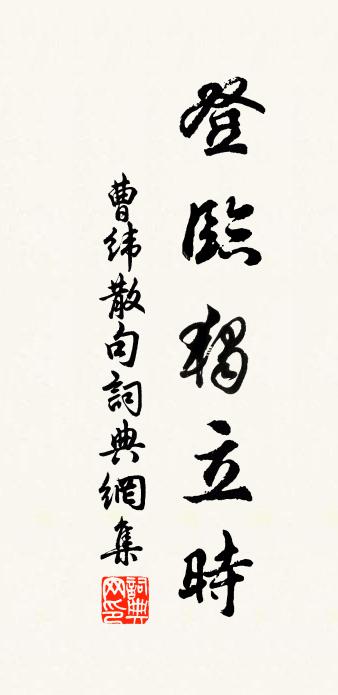 登臨獨立時
曹緯散句詞典網集
詞典網印